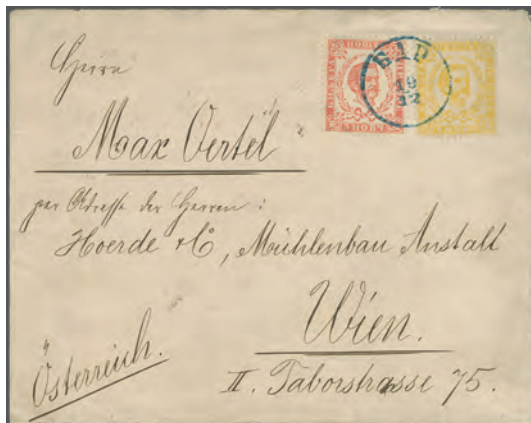 БАР
19
12
Herrn
Max Oertel
per Adresse der Herren:
Hoerde & Co, Mühlenbau Anstalt
Wien.
Österreich.
II. Taborstrasse 75.